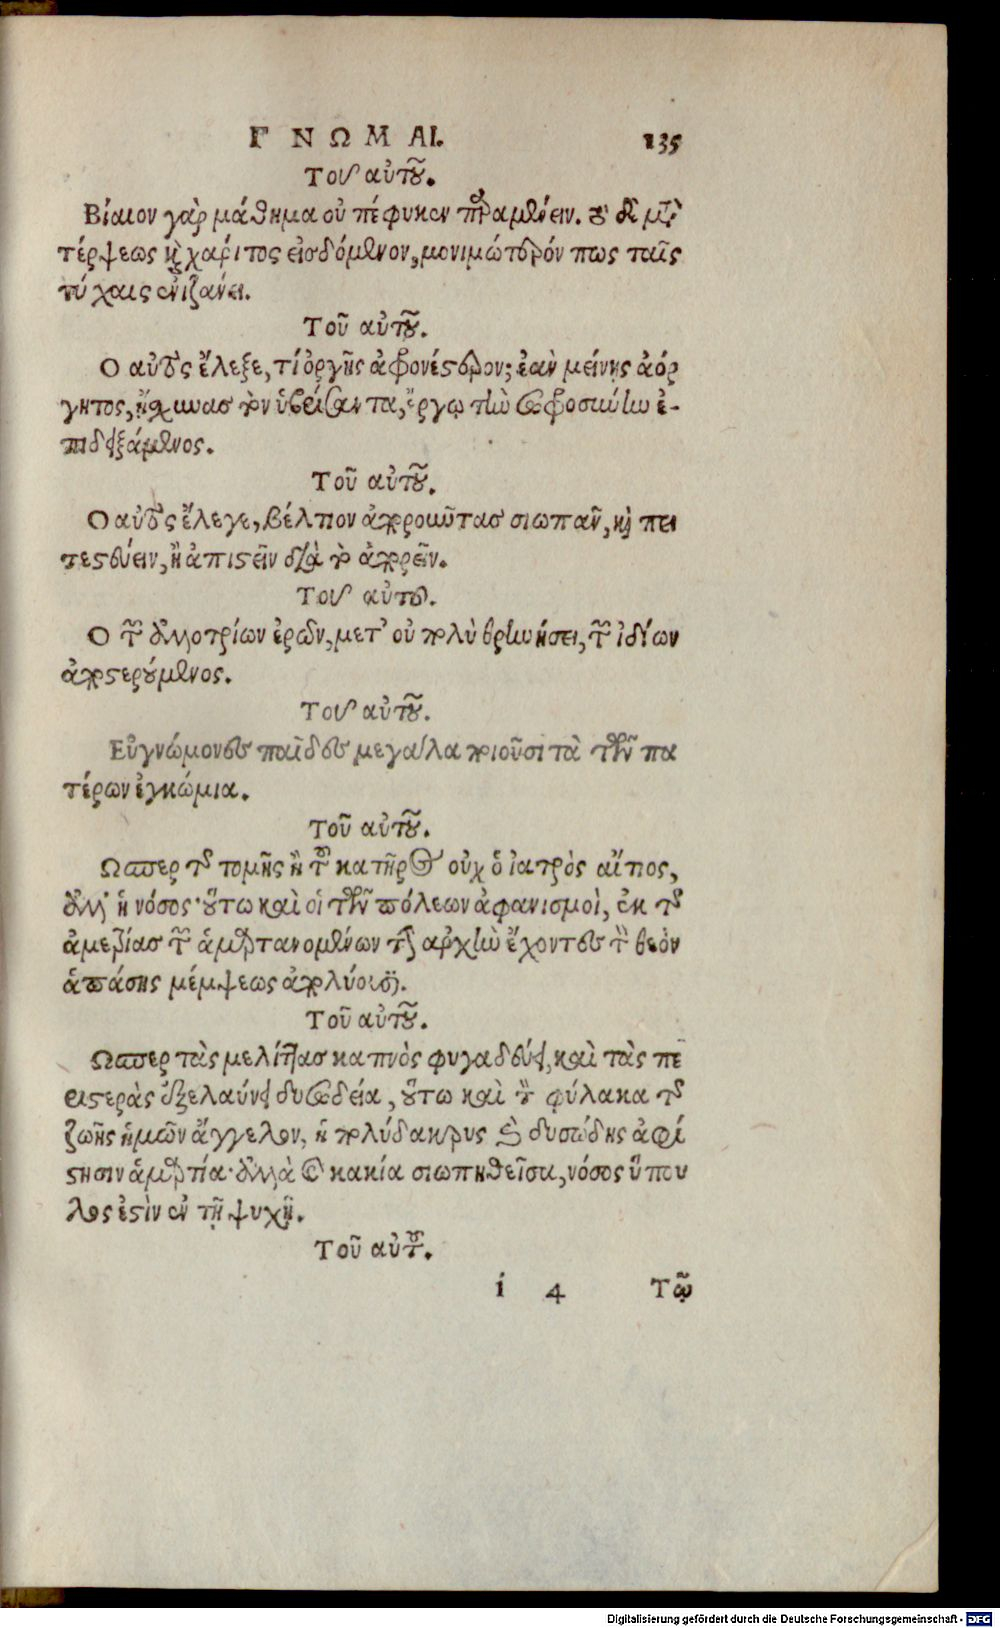 ΓΝΩΜΑΙ. 135
Τοῦ αὐτοῦ.
Βίαιον γὰρ μάθημα οὐ πέφυκεν παραμένειν. τὸ δὲ μετὰ
τέρψεως καὶ χάριτος εἰσδόμενον, μονιμώτερόν πως ταῖς
ψύχαις ἐνιζάνει.
Τοῦ αὐτοῦ.
Ο αὐτὸς ἔλεξε, τί ὀργῆς ἀφρονέστερον; ἐὰν μείνης ἀόρ
γητος, ᾔσχυνας τὸν ὑβρίσαντα, ἔργῳ τὴν σωφροσύνην ἐ-
πιδειξάμενος.
Τοῦ αὐτοῦ.
Ο αὐτὸς ἔλεγε, βέλτιον ἀποροῦντας σιωπᾶν, καὶ πι
στεύειν, ἢ ἀπιστεῖν διὰ τὸ ἀπορεῖν.
Τοῦ αὐτοῦ.
Ο τῶν ἀλλοτρίων ἐρῶν, μετ' οὐ πολὺ θρηνήσει, τῶν ἰδίων
ἀποστερούμενος.
Τοῦ αὐτοῦ.
Εὐγνώμονες παῖδες μεγάλα ποιοῦσι τὰ τῶν πα
τέρων ἐγκώμια.
Τοῦ αὐτοῦ.
Ωσπερ τῆς τομῆς ἢ τοῦ καυτῆρος οὐχ ὁ ἰατρὸς αἴτιος,
ἀλλ' ἡ νόσος· οὕτω καὶ οἱ τῶν πόλεων ἀφανισμοὶ, ἐκ τῆς
ἀμετρίας τῶν ἁμαρτανομένων τὴν ἀρχὴν ἔχοντες τὸν θεὸν
ἁπάσης μέμψεως ἀπολύουσι.
Τοῦ αὐτοῦ.
Ωσπερ τὰς μελίττας καπνὸς φυγαδεύει, καὶ τὰς πε
ριστερὰς ἐξελαύνει δυσωδεία, οὕτω καὶ τὸν φύλακα τῆς
ζωῆς ἡμῶν ἄγγελον, ἡ πολύδακρυς καὶ δυσώδης ἀφί
στησιν ἁμαρτία· ἀλλὰ καὶ κακία σιωπηθεῖσα, νόσος ὕπου
λος ἐστὶν ἐν τῇ ψυχῇ.
Τοῦ αὐτοῦ.
i 4 Τῷ
Digitalisierung gefördert durch die Deutsche Forschungsgemeinschaft - DFG